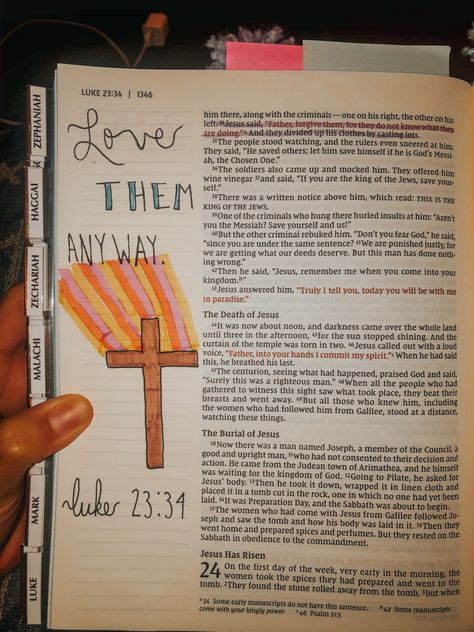 LUKE 23:34 | 1346
Love
THEM
ANYWAY.
Luke 23:34
ZEPHANIAH
HAGGAI
ZECHARIAH
MALACHI
MARK
LUKE
him there, along with the criminals — one on his right, the other on his
left. 34 Jesus said, "Father, forgive them, for they do not know what they
are doing."a And they divided up his clothes by casting lots.
35 The people stood watching, and the rulers even sneered at him.
They said, "He saved others; let him save himself if he is God's Messi-
ah, the Chosen One."
36 The soldiers also came up and mocked him. They offered him
wine vinegar 37 and said, "If you are the king of the Jews, save your-
self."
38 There was a written notice above him, which read: THIS IS THE
KING OF THE JEWS.
39 One of the criminals who hung there hurled insults at him: "Aren't
you the Messiah? Save yourself and us!"
40 But the other criminal rebuked him. "Don't you fear God," he said,
"since you are under the same sentence? 41 We are punished justly, for
we are getting what our deeds deserve. But this man has done noth-
ing wrong."
42 Then he said, "Jesus, remember me when you come into your
kingdom.b"
43 Jesus answered him, "Truly I tell you, today you will be with me
in paradise."
The Death of Jesus
44 It was now about noon, and darkness came over the whole land
until three in the afternoon, 45 for the sun stopped shining. And the
curtain of the temple was torn in two. 46 Jesus called out with a loud
voice, "Father, into your hands I commit my spirit."c When he had said
this, he breathed his last.
47 The centurion, seeing what had happened, praised God and said,
"Surely this was a righteous man." 48 When all the people who had
gathered to witness this sight saw what took place, they beat their
breasts and went away. 49 But all those who knew him, including
the women who had followed him from Galilee, stood at a distance,
watching these things.
The Burial of Jesus
50 Now there was a man named Joseph, a member of the Council, a
good and upright man, 51 who had not consented to their decision and
action. He came from the Judean town of Arimathea, and he himself
was waiting for the kingdom of God. 52 Going to Pilate, he asked for
Jesus' body. 53 Then he took it down, wrapped it in linen cloth and
placed it in a tomb cut in the rock, one in which no one had yet been
laid. 54 It was Preparation Day, and the Sabbath was about to begin.
55 The women who had come with Jesus from Galilee followed Jo-
seph and saw the tomb and how his body was laid in it. 56 Then they
went home and prepared spices and perfumes. But they rested on the
Sabbath in obedience to the commandment.
Jesus Has Risen
24 On the first day of the week, very early in the morning, the
women took the spices they had prepared and went to the
tomb. 2 They found the stone rolled away from the tomb, 3 but when
a 34 Some early manuscripts do not have this sentence. b 42 Some manuscripts
come with your kingly power c 46 Psalm 31:5